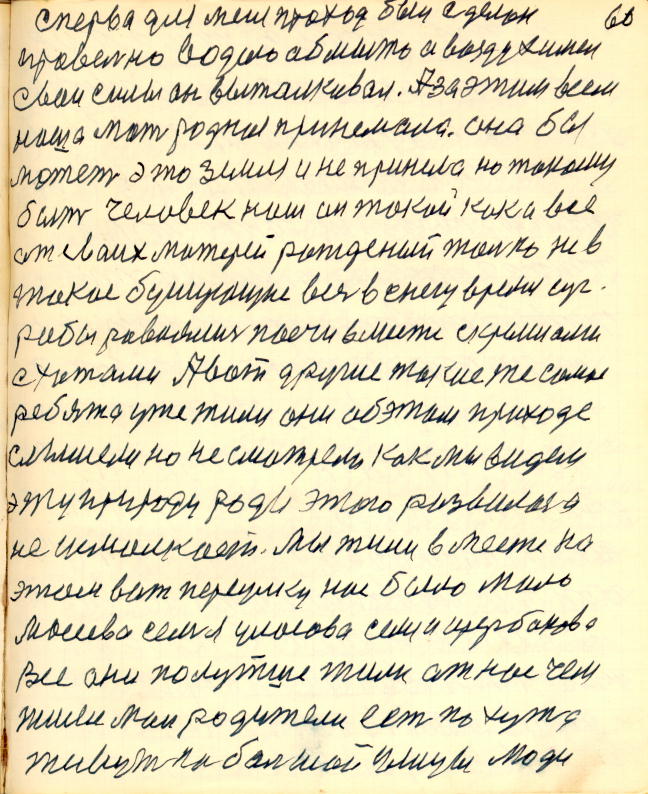 сперва для меня проход был сделан 60
правелно водою обмыть а воздух имел
свои силы он выталкивал. А за этим всем
наша мать родная принемала. она был
может это земля и не принела но такому
быть человек наш он такой как и все
от сваих матерей рожденый только не в
такое бушующие
рабы равнялись поечи вместе
с хатами А вот другие такие же самые
ребята уже жили они об этом приходе
слышели но не смотрели как мы видем
эту природу ради этого развилася
не умолкает. Мы жили в месте на
этом вот переулку нас было мало
Мосева семя улосова семя щербакова
Все они полутше жили от нас чем
жили маи родители есть по хуже
живут по балшой улицы люди